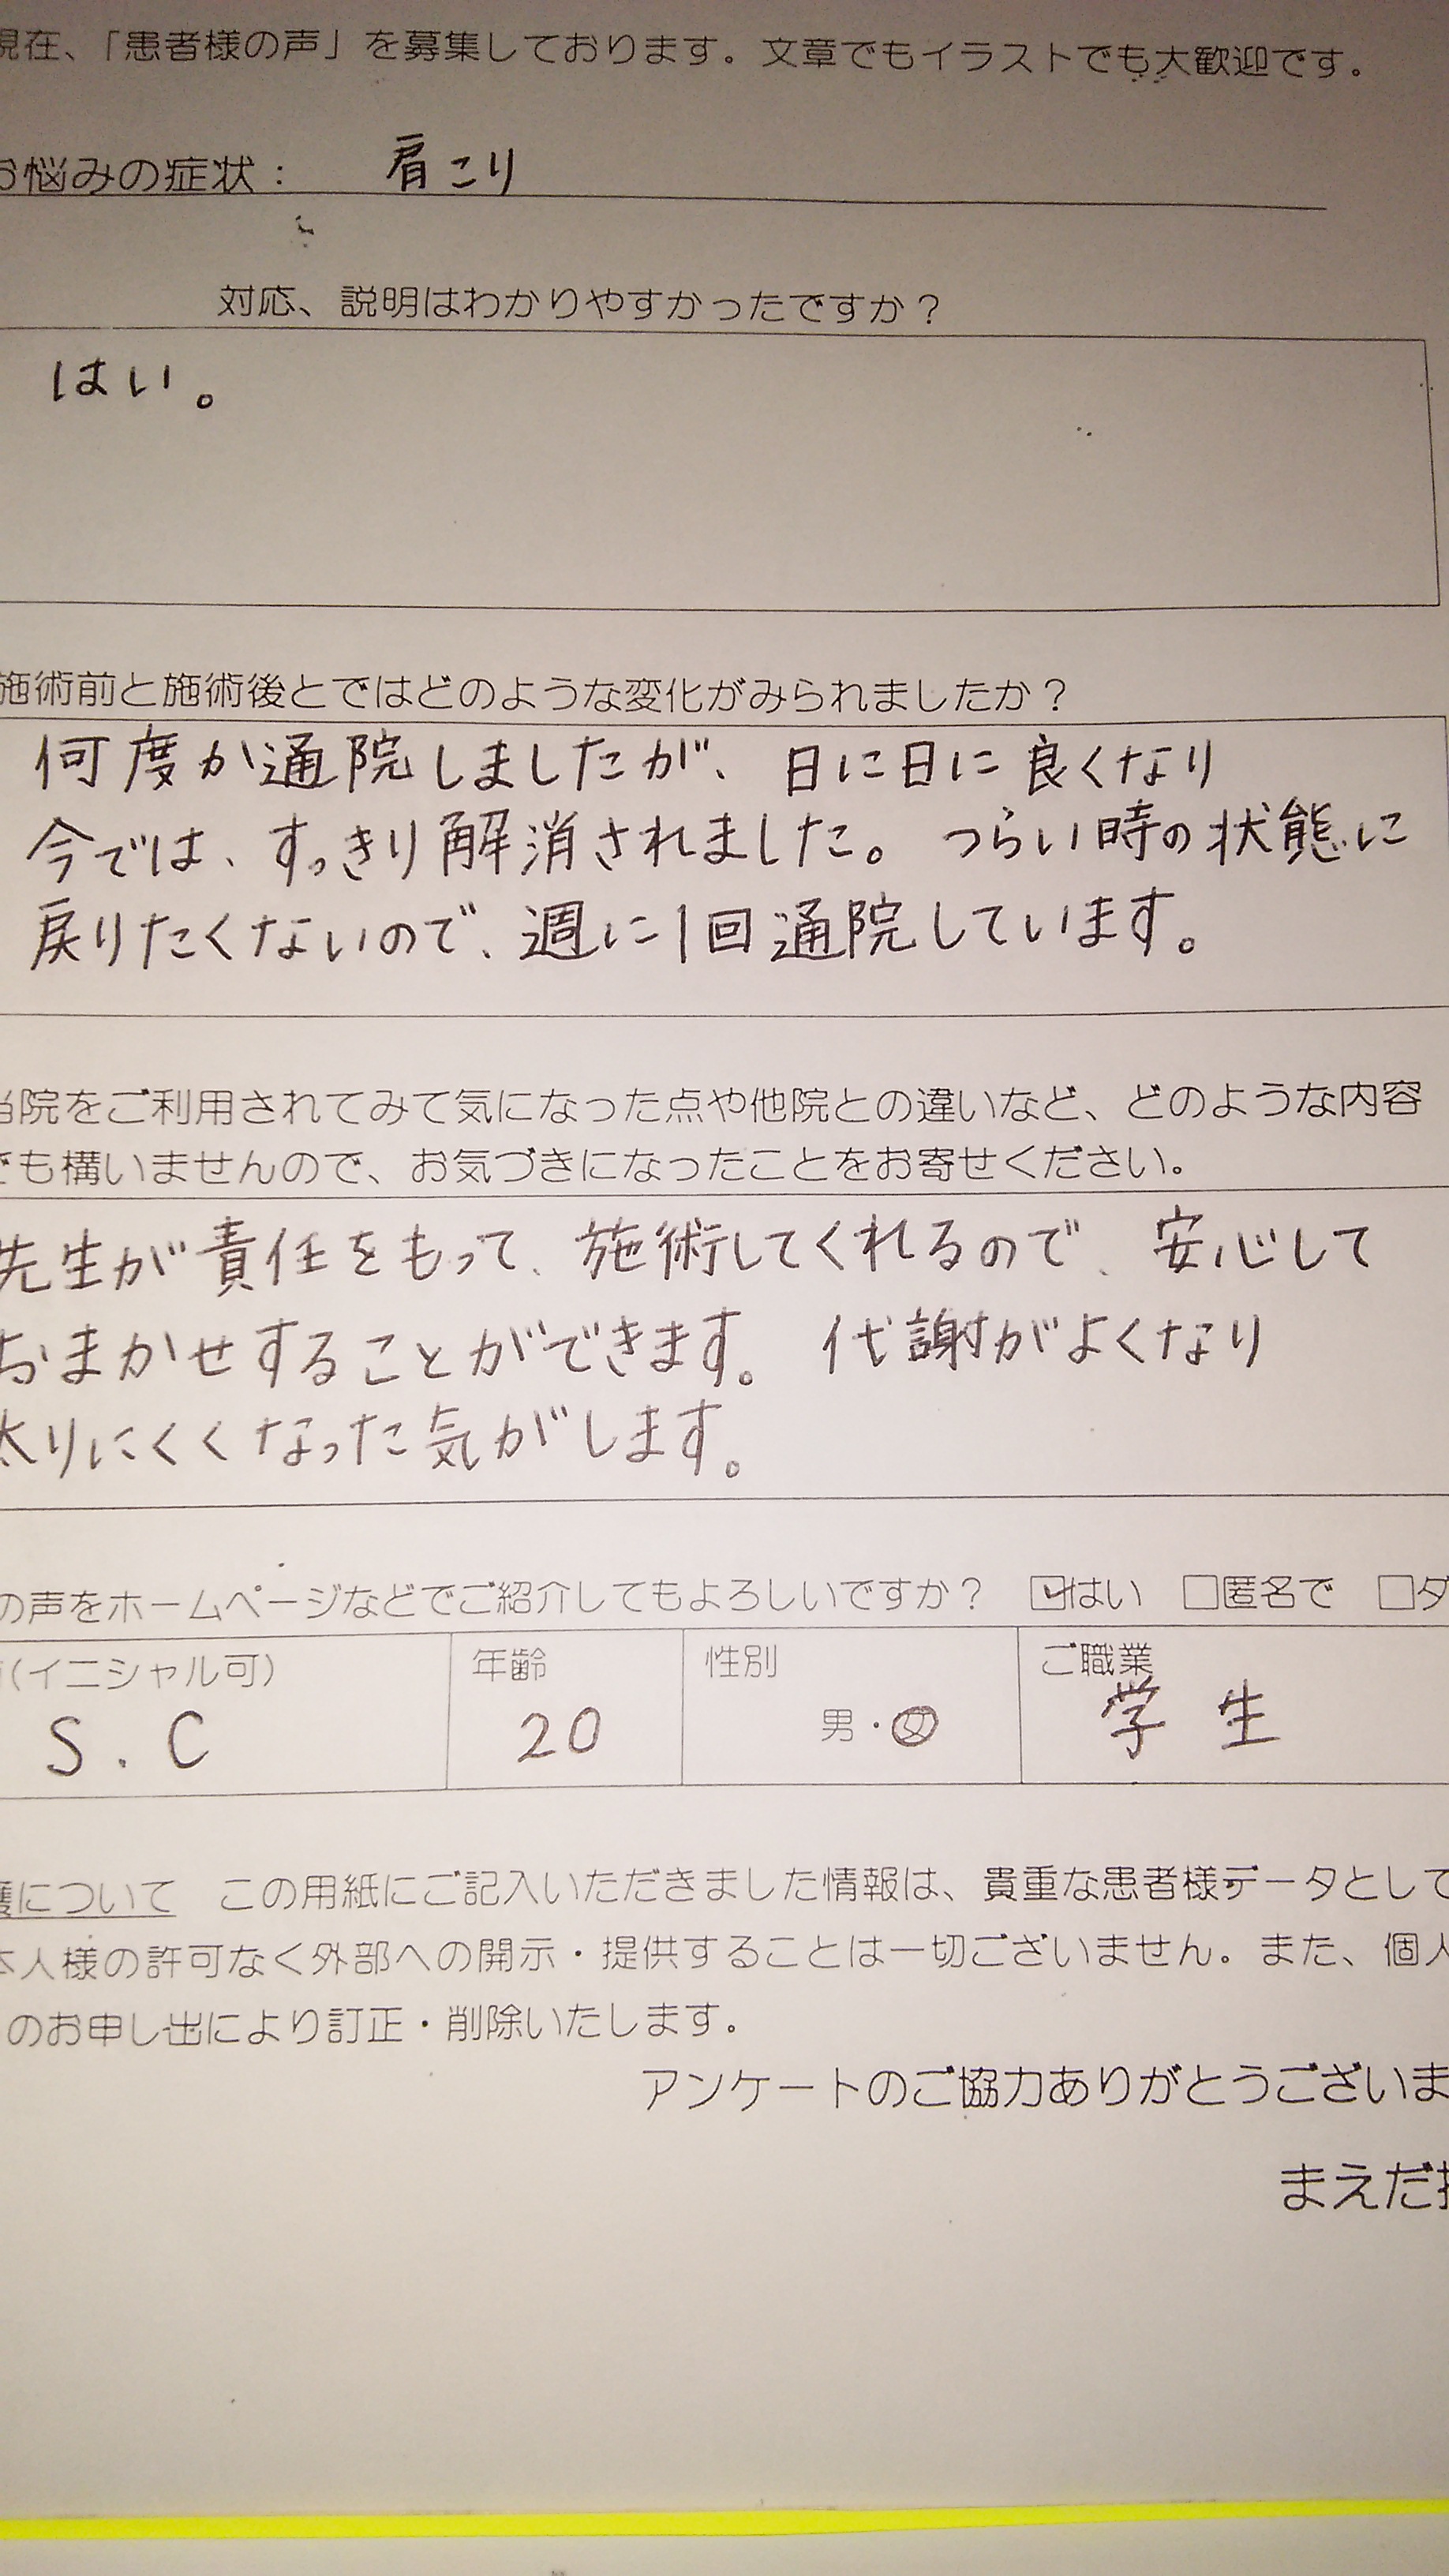 現在、「患者様の声」を募集しております。文章でもイラストでも大歓迎です。
お悩みの症状： 肩こり
対応、説明はわかりやすかったですか？
はい。
施術前と施術後とではどのような変化がみられましたか？
何度か通院しましたが、日に日に良くなり
今では、すっきり解消されました。つらい時の状態に
戻りたくないので、週に1回通院しています。
当院をご利用されてみて気になった点や他院との違いなど、どのような内容
でも構いませんので、お気づきになったことをお寄せください。
先生が責任をもって、施術してくれるので、安心して
おまかせすることができます。代謝がよくなり
太りにくくなった気がします。
の声をホームページなどでご紹介してもよろしいですか？ ☑はい □匿名で □ダ
(イニシャル可) 年齢 性別 ご職業
S.C 20 男・女 学生
護について この用紙にご記入いただきました情報は、貴重な患者様データとして
本人様の許可なく外部への開示・提供することは一切ございません。また、個人
のお申し出により訂正・削除いたします。
アンケートのご協力ありがとうございま
まえだ